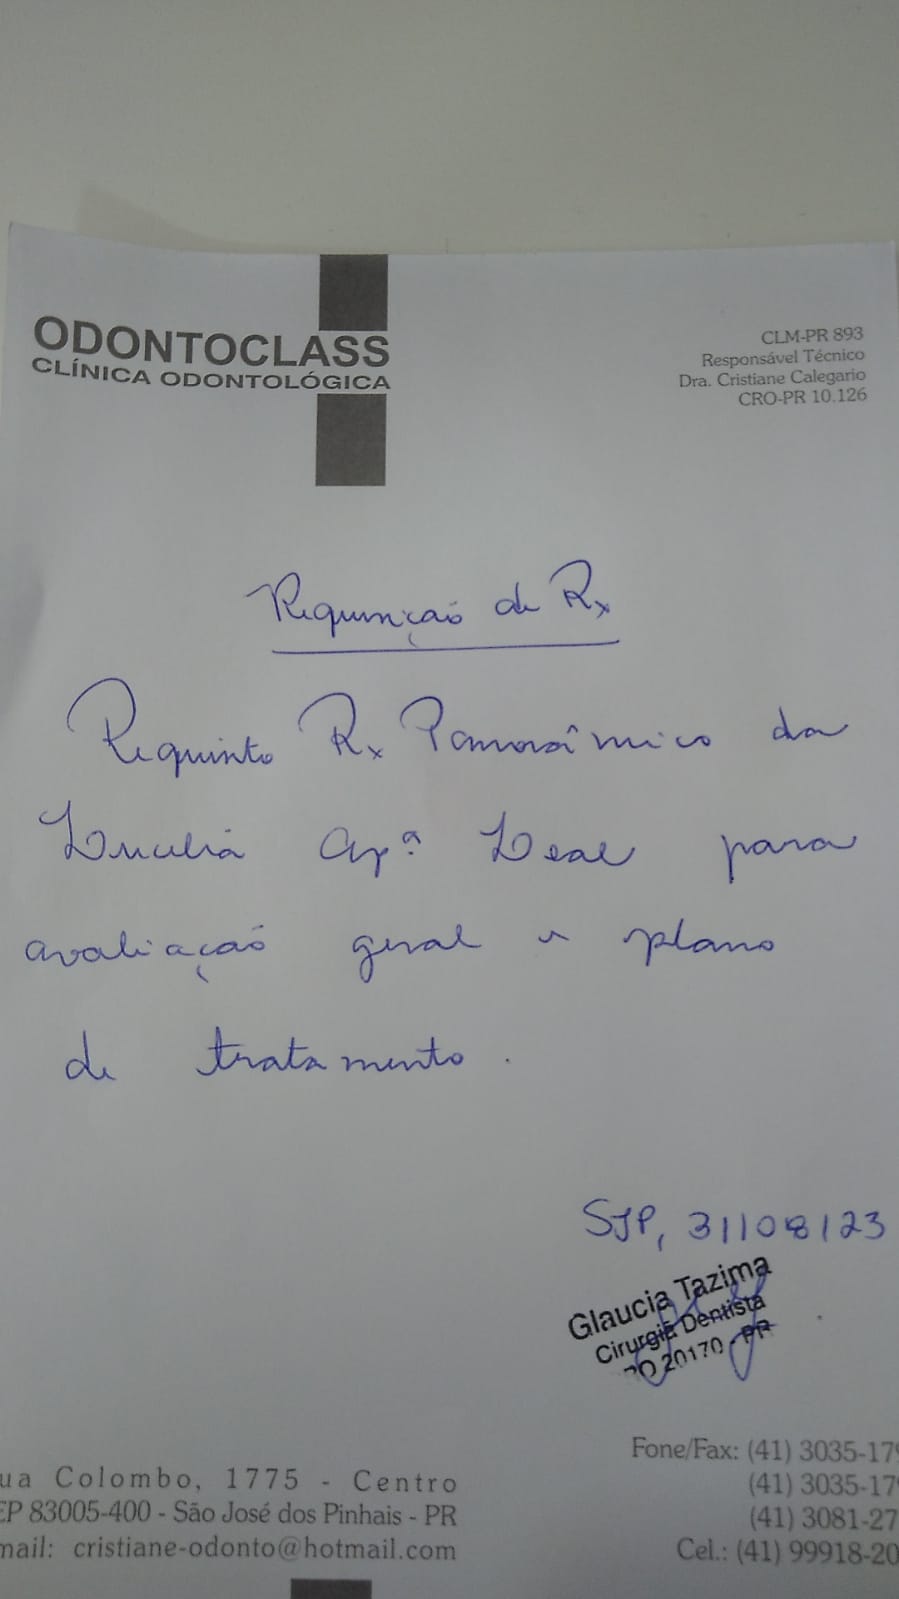 ODONTOCLASS
CLÍNICA ODONTOLÓGICA
CLM-PR 893
Responsável Técnico
Dra. Cristiane Calegario
CRO-PR 10.126
Requisição de Rx
Requisito Rx Panorâmico da
Apª Leal para
avaliação geral e plano
de tratamento.
SJP, 31/08/23
Glaucia Tazima
Cirurgiã Dentista
RO 20170 - PR
ua Colombo, 1775 - Centro
EP 83005-400 - São José dos Pinhais - PR
mail: cristiane-odonto@hotmail.com
Fone/Fax: (41) 3035-179
(41) 3035-179
(41) 3081-27
Cel.: (41) 99918-20